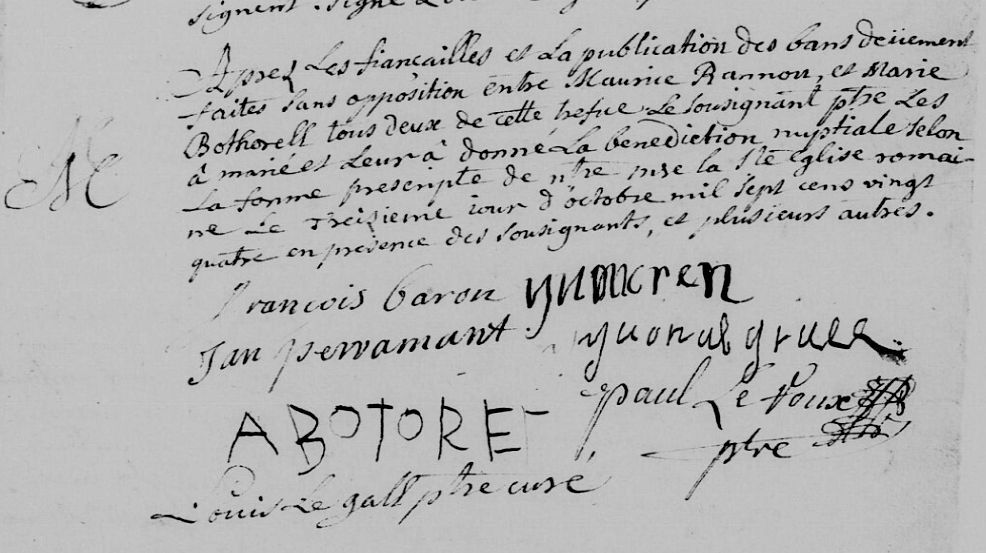 signent. signé
Aprez Les fiancailles et La publication des bans deüement
faites sans opposition entre Maurice Rannou, et Marie
Bothorell tous deux de cette trefue Le sousignant ptre Les
à mariéet Leur à donné La benediction nuptiale selon
La forme prescripte de ntre mre la Ste Eglise romai-
ne Le Treizieme iour d'octobre mil sept cens vingt
quatre en presence des sousignants, et plusieurs autres.
M
François baron
Jan pervamant
paul Le roux
ABOTORE
ptre
Louis Le gall ptre curé